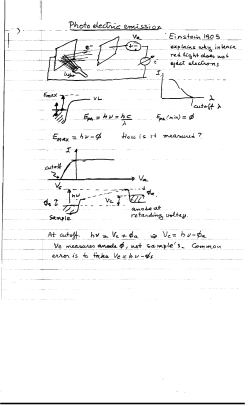 Photoelectric emission
Einstein 1905
explains why intense
red light does not
eject electrons
Va
e-
light
I
λ
cutoff λ
Emax
VL
Eph = hν = hc/λ
Eph (min) = φ
Emax = hν-φ How is it measured?
I
cutoff
Va
Vc
hν
φs
φa
Vc
sample
anode at
retarding voltage.
At cutoff. hν = Vc + φa ⇒ Vc = hν-φa
Vc measures anode φ, not sample's. Common
error is to take Vc = hν-φs